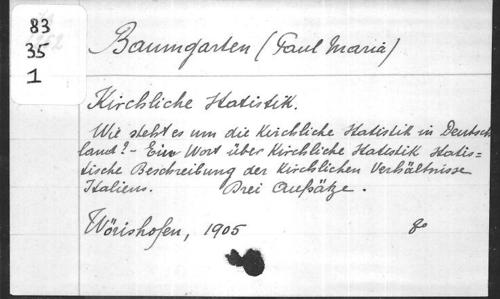 83
35
1
Baumgarten (Paul Maria)
Kirchliche Statistik.
Wie steht es um die kirchliche Statistik in Deutsch
land? - Ein Wort über kirchliche Statistik Statis=
tische Beschreibung der kirchlichen Verhältnisse
Italiens. Drei Aufsätze.
Wörishofen, 1905
8o